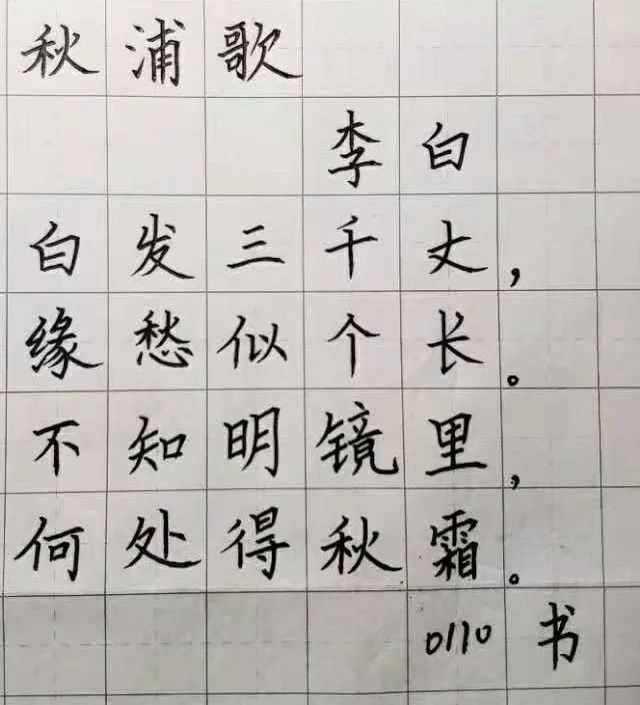 秋浦歌
李白
白发三千丈，
缘愁似个长。
不知明镜里，
何处得秋霜。
0110 书